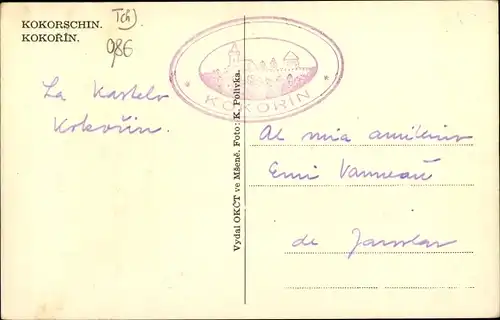 KOKORSCHIN.
KOKOŘÍN.
Tch)
986
KOKOŘÍN
La Kastelo
Kokořin.
Vydal OKČT ve Mšeně. Foto: K. Polivka.
Al mia amikino
Emi
de Jaroslav